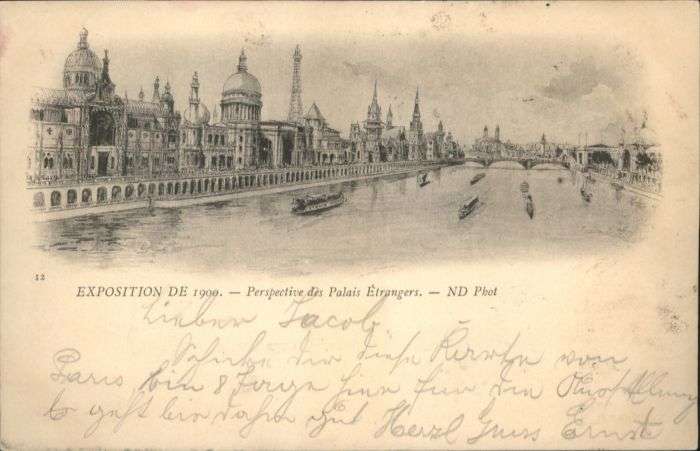 12
EXPOSITION DE 1900. — Perspective des Palais Étrangers. — ND Phot
Lieber Jacob
Schicke Dir diese Karte von
Paris bin 8 Tage hier für die Ausstellung
Es geht bis dahin gut Herzl Gruss Ernst